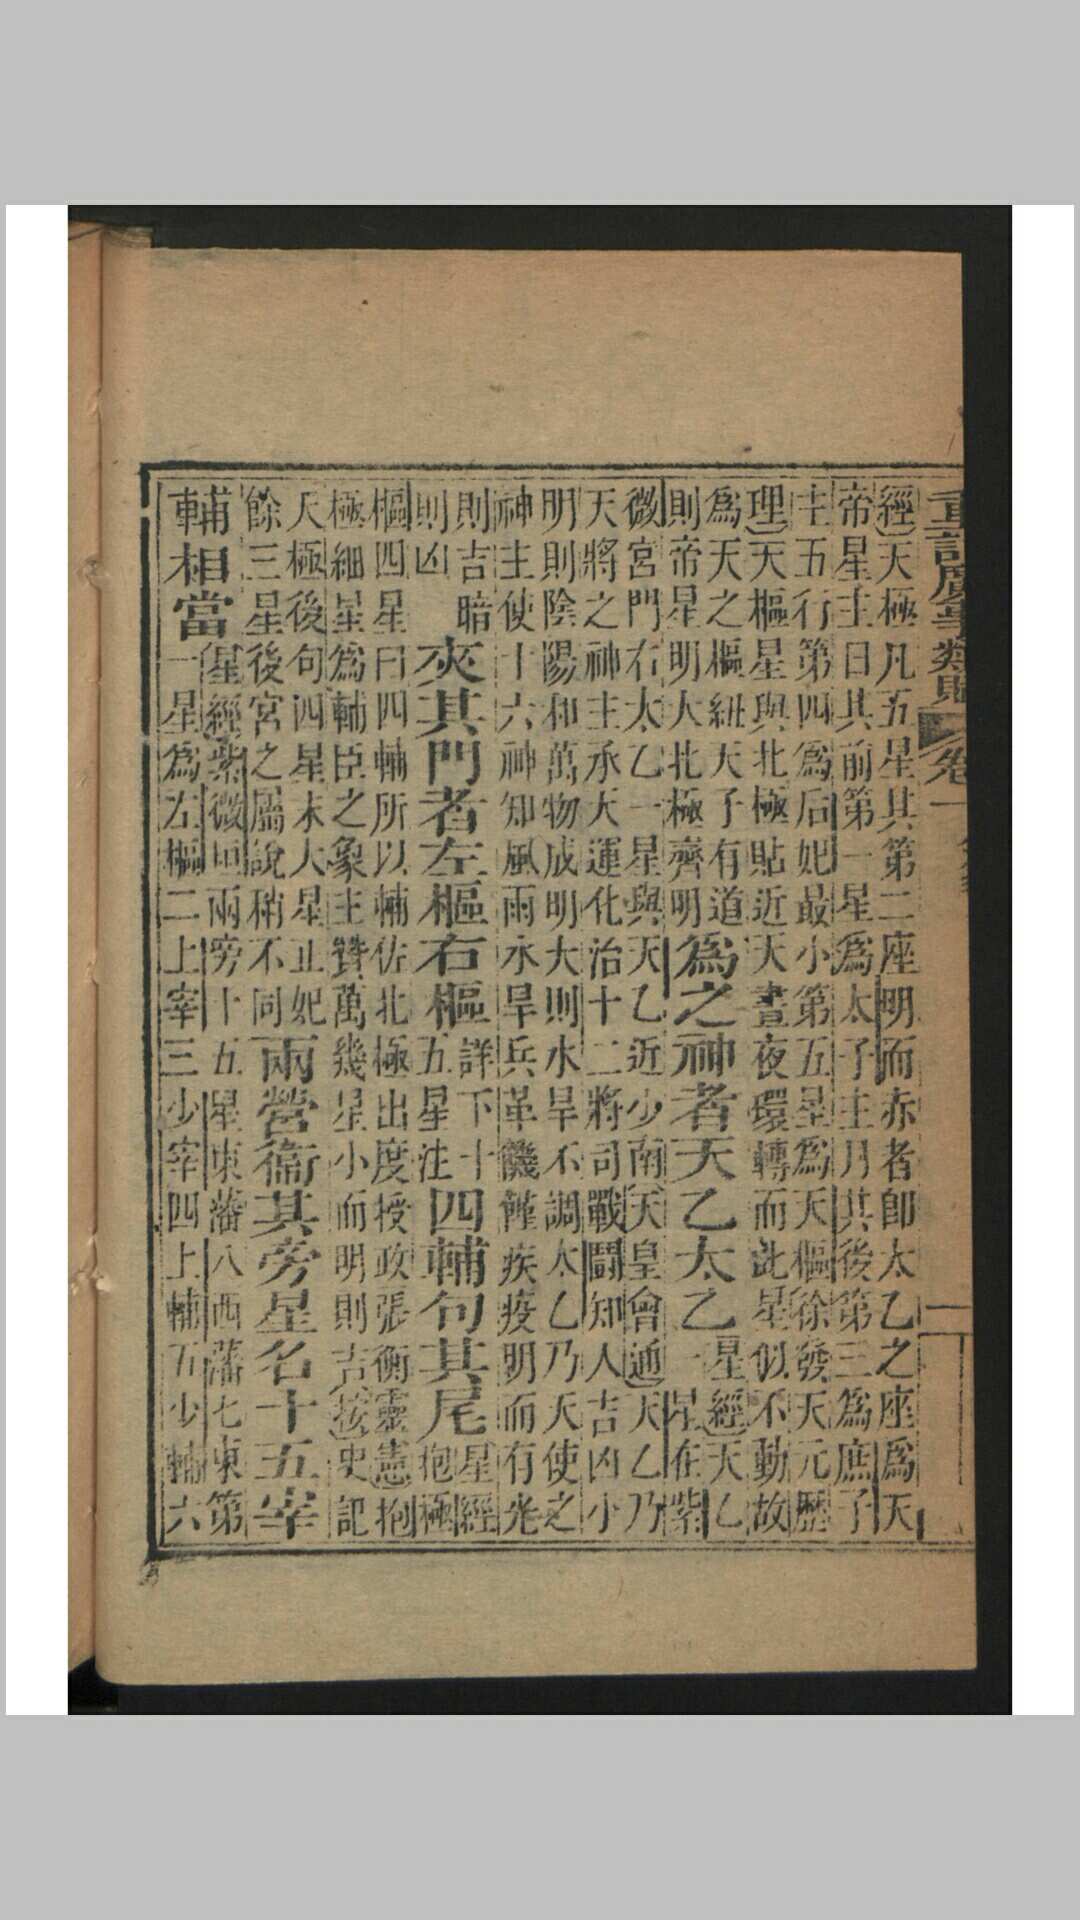 重訂廣事類賦 卷一
經天極凡五星其第二座明而赤者即太乙之座爲天
帝星主日其前第一星爲太子主月其後第三爲庶子
主五行第四爲后妃最小第五星爲天樞徐發天元歷
理天樞星與北極貼近天晝夜環轉而此星似不動故
爲天之樞紐天子有道
則帝星明大北極齊明
爲之神者天乙太乙
星經天乙
一星在紫
微宮門右太乙一星與天乙近少南天皇會通天乙乃
天將之神主承大運化治十二將司戰鬪知人吉凶小
明則陰陽和萬物成明大則水旱不調太乙乃天使之
神主使十六神知風雨水旱兵革饑饉疾疫明而有光
則吉暗
則凶
夾其門者左樞右樞
詳下十
五星注
四輔句其尾
星經
抱極
樞四星曰四輔所以輔佐北極出度授政張衡靈憲抱
極細星爲輔臣之象主贊萬幾星小而明則吉按史記
天極後句四星末大星正妃
餘三星後宮之屬說稍不同
兩營衞其旁星名十五宰
輔相當
星經紫微垣兩旁十五星東藩八西藩七東第
一星爲左樞二上宰三少宰四上輔五少輔六